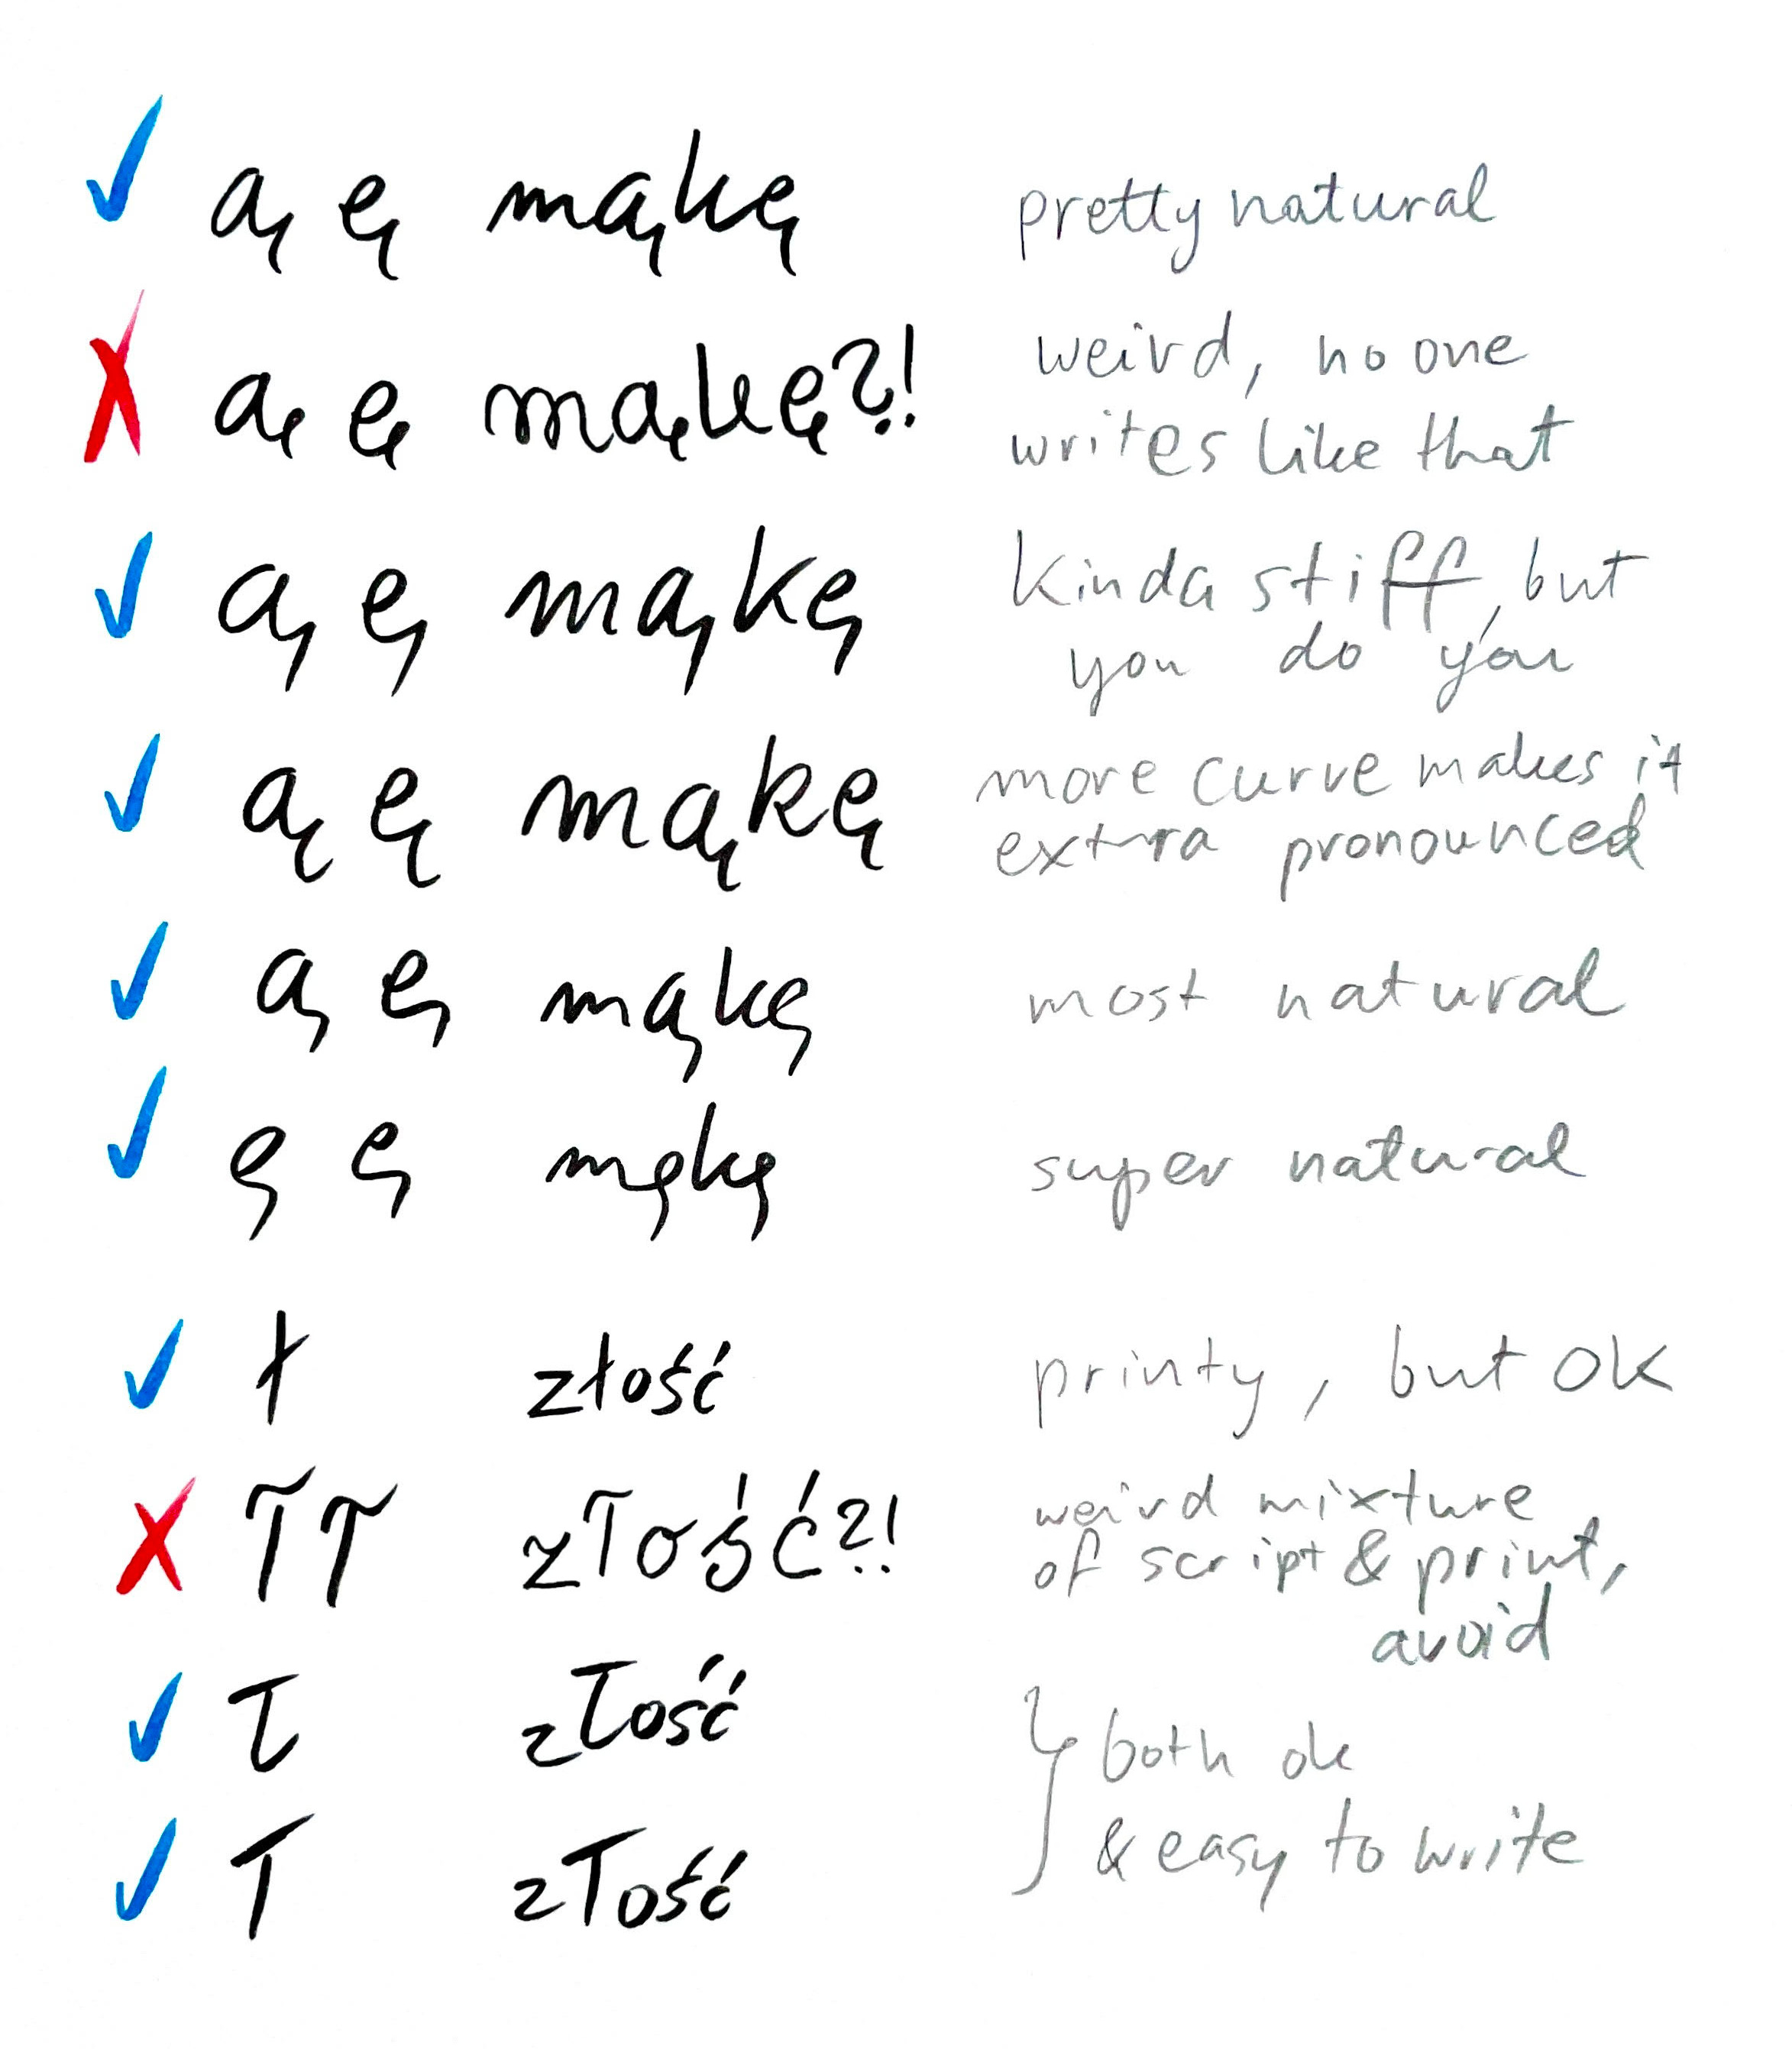 ✓ ą ę mąkę pretty natural
✗ ą ę mąkę?! weird, no one
writes like that
✓ ą ę mąkę Kinda stiff, but
you do you
✓ ą ę mąkę more curve makes it
extra pronounced
✓ ą ę mąkę most natural
✓ ą ę mąkę super natural
✓ ł złość printy, but OK
✗ ł ł złość?! weird mixture
of script & print,
avoid
✓ ł złość } both ok
✓ ł złość & easy to write